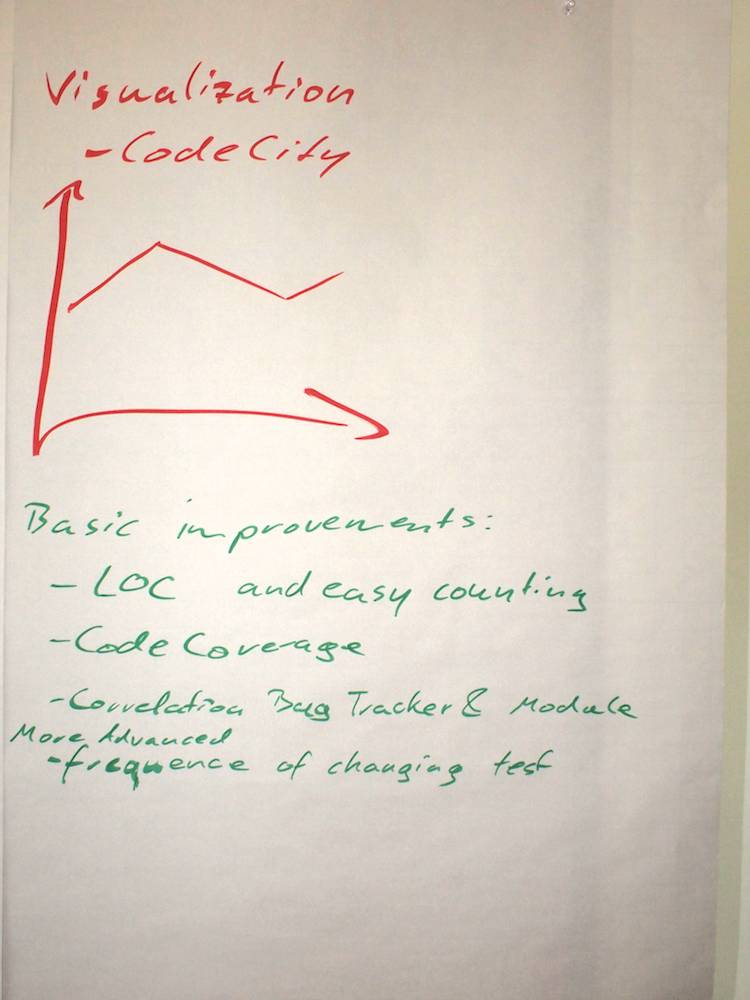 Visualization
- CodeCity
Basic improvements:
- LOC and easy counting
- Code Coverage
- Correlation Bug Tracker & Module
More Advanced
- frequence of changing test